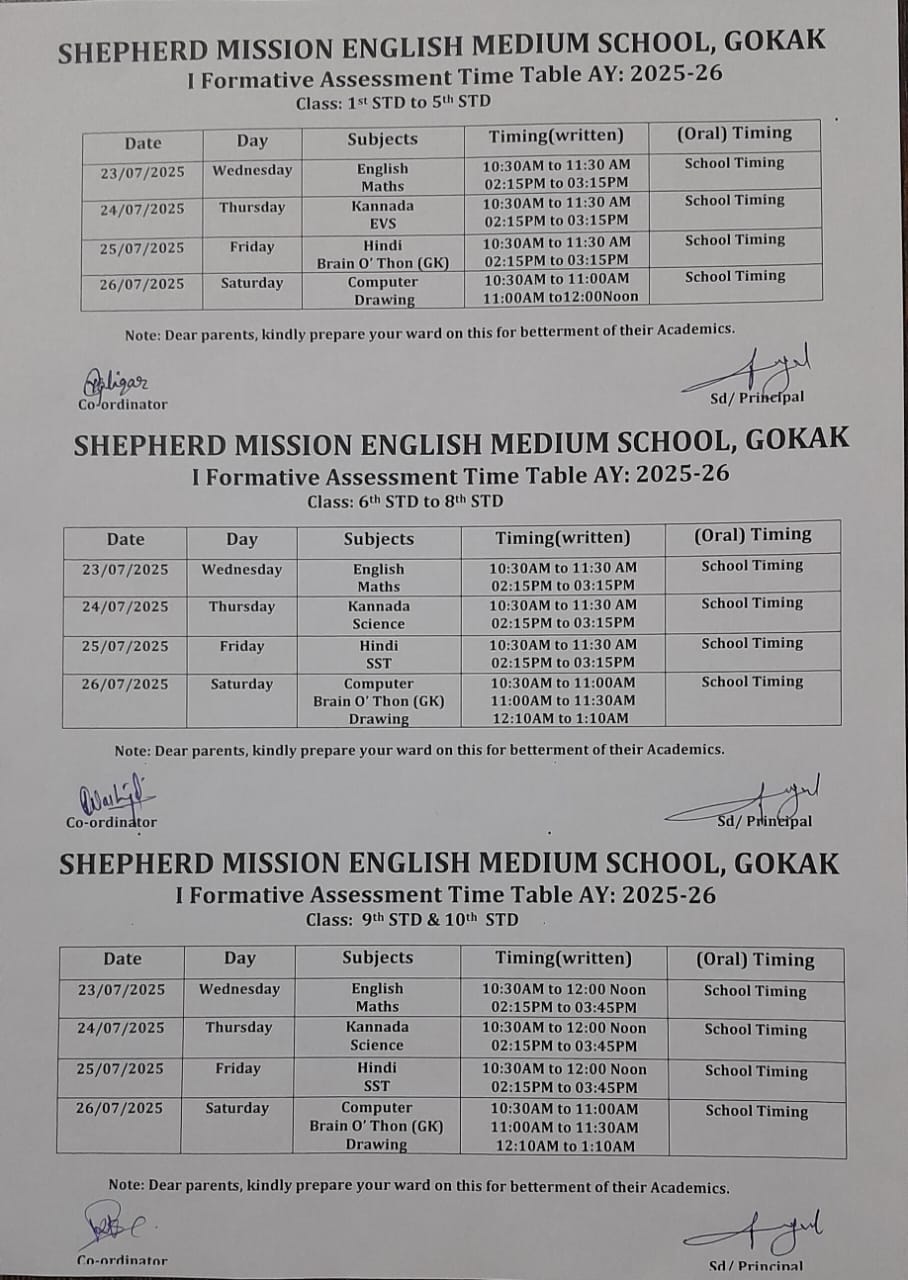 SHEPHERD MISSION ENGLISH MEDIUM SCHOOL, GOKAK
I Formative Assessment Time Table AY: 2025-26
Class: 1st STD to 5th STD
Date Day Subjects Timing(written) (Oral) Timing
23/07/2025 Wednesday English 10:30AM to 11:30 AM School Timing
Maths 02:15PM to 03:15PM
24/07/2025 Thursday Kannada 10:30AM to 11:30 AM School Timing
EVS 02:15PM to 03:15PM
25/07/2025 Friday Hindi 10:30AM to 11:30 AM School Timing
Brain O' Thon (GK) 02:15PM to 03:15PM
26/07/2025 Saturday Computer 10:30AM to 11:00AM School Timing
Drawing 11:00AM to12:00Noon
Note: Dear parents, kindly prepare your ward on this for betterment of their Academics.
Co-ordinator Sd/ Principal
SHEPHERD MISSION ENGLISH MEDIUM SCHOOL, GOKAK
I Formative Assessment Time Table AY: 2025-26
Class: 6th STD to 8th STD
Date Day Subjects Timing(written) (Oral) Timing
23/07/2025 Wednesday English 10:30AM to 11:30 AM School Timing
Maths 02:15PM to 03:15PM
24/07/2025 Thursday Kannada 10:30AM to 11:30 AM School Timing
Science 02:15PM to 03:15PM
25/07/2025 Friday Hindi 10:30AM to 11:30 AM School Timing
SST 02:15PM to 03:15PM
26/07/2025 Saturday Computer 10:30AM to 11:00AM School Timing
Brain O' Thon (GK) 11:00AM to 11:30AM
Drawing 12:10AM to 1:10AM
Note: Dear parents, kindly prepare your ward on this for betterment of their Academics.
Co-ordinator Sd/ Principal
SHEPHERD MISSION ENGLISH MEDIUM SCHOOL, GOKAK
I Formative Assessment Time Table AY: 2025-26
Class: 9th STD & 10th STD
Date Day Subjects Timing(written) (Oral) Timing
23/07/2025 Wednesday English 10:30AM to 12:00 Noon School Timing
Maths 02:15PM to 03:45PM
24/07/2025 Thursday Kannada 10:30AM to 12:00 Noon School Timing
Science 02:15PM to 03:45PM
25/07/2025 Friday Hindi 10:30AM to 12:00 Noon School Timing
SST 02:15PM to 03:45PM
26/07/2025 Saturday Computer 10:30AM to 11:00AM School Timing
Brain O' Thon (GK) 11:00AM to 11:30AM
Drawing 12:10AM to 1:10AM
Note: Dear parents, kindly prepare your ward on this for betterment of their Academics.
Co-ordinator Sd/ Principal